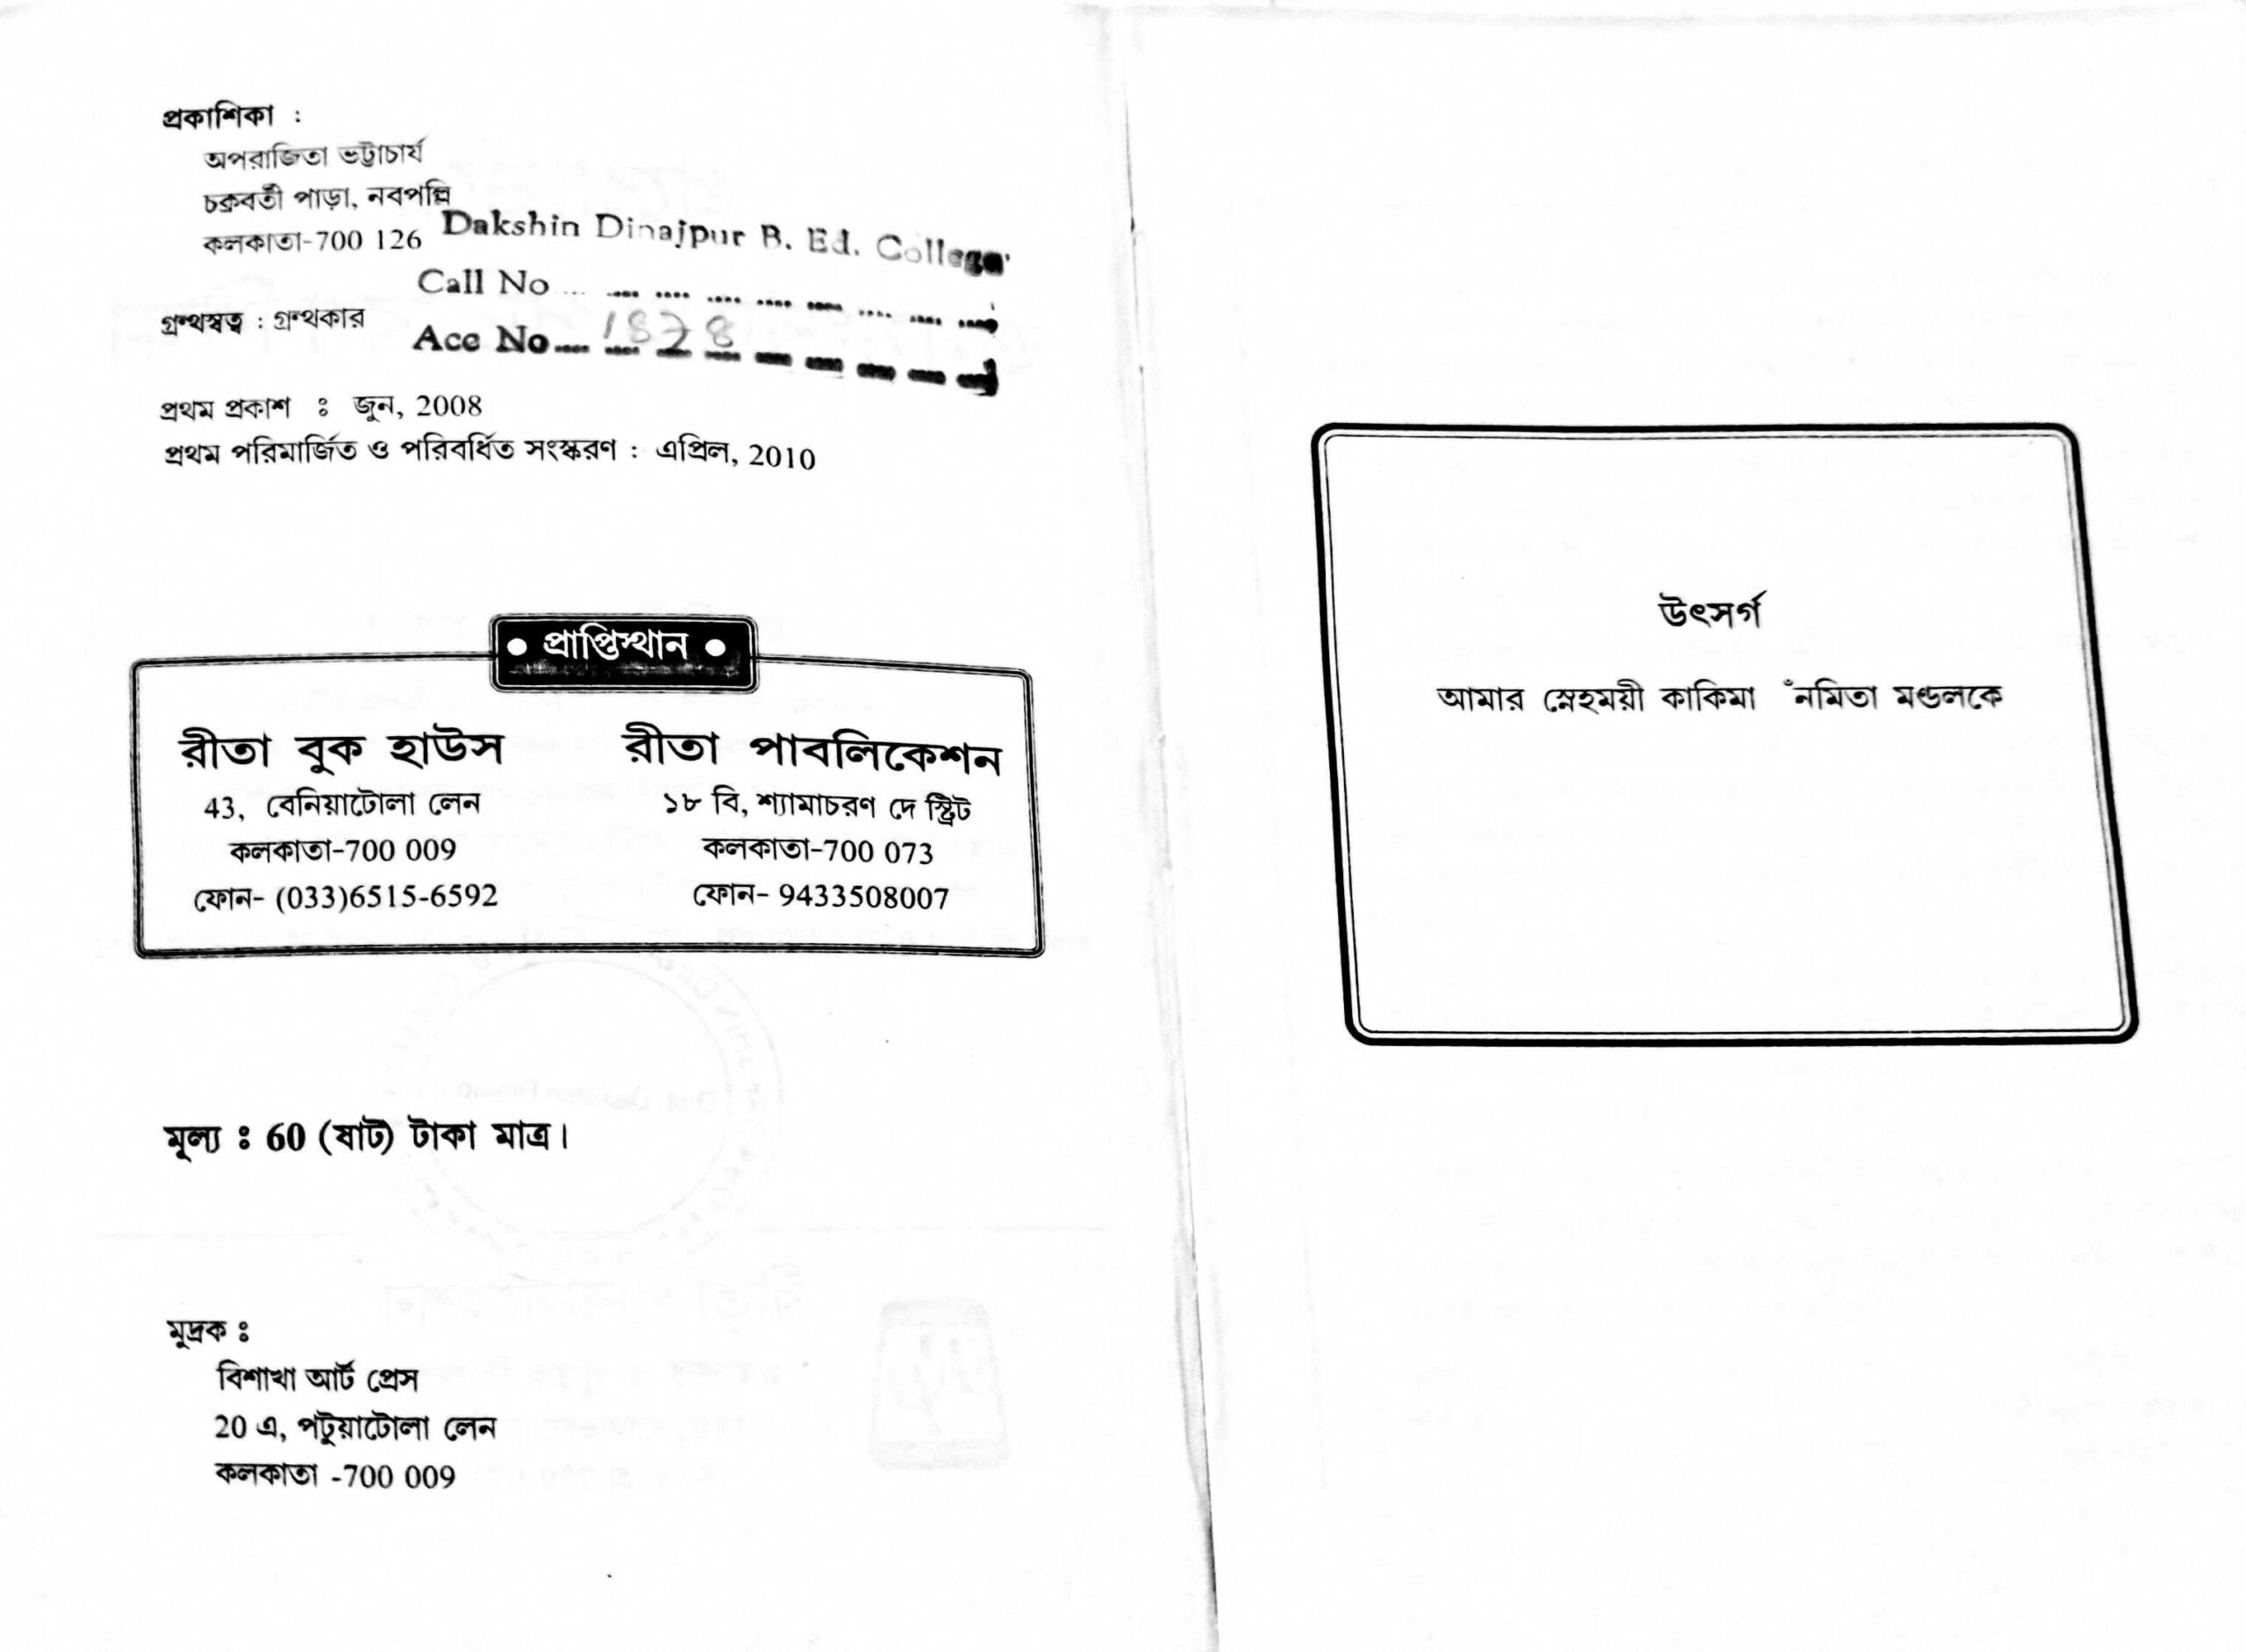 প্রকাশিকা :
অপরাজিতা ভট্টাচার্য
চক্রবর্তী পাড়া, নবপল্লি
কলকাতা-700 126
Dakshin Dinajpur B. Ed. College
Call No
Acc No 1878
গ্রন্থস্বত্ব : গ্রন্থকার
প্রথম প্রকাশ ঃ জুন, 2008
প্রথম পরিমার্জিত ও পরিবর্ধিত সংস্করণ : এপ্রিল, 2010
• প্রাপ্তিস্থান •
রীতা বুক হাউস
43, বেনিয়াটোলা লেন
কলকাতা-700 009
ফোন- (033)6515-6592
রীতা পাবলিকেশন
১৮ বি, শ্যামাচরণ দে স্ট্রিট
কলকাতা-700 073
ফোন- 9433508007
মূল্য ঃ 60 (ষাট) টাকা মাত্র।
মুদ্রক ঃ
বিশাখা আর্ট প্রেস
20 এ, পটুয়াটোলা লেন
কলকাতা -700 009
উৎসর্গ
আমার স্নেহময়ী কাকিমা ঁনমিতা মণ্ডলকে